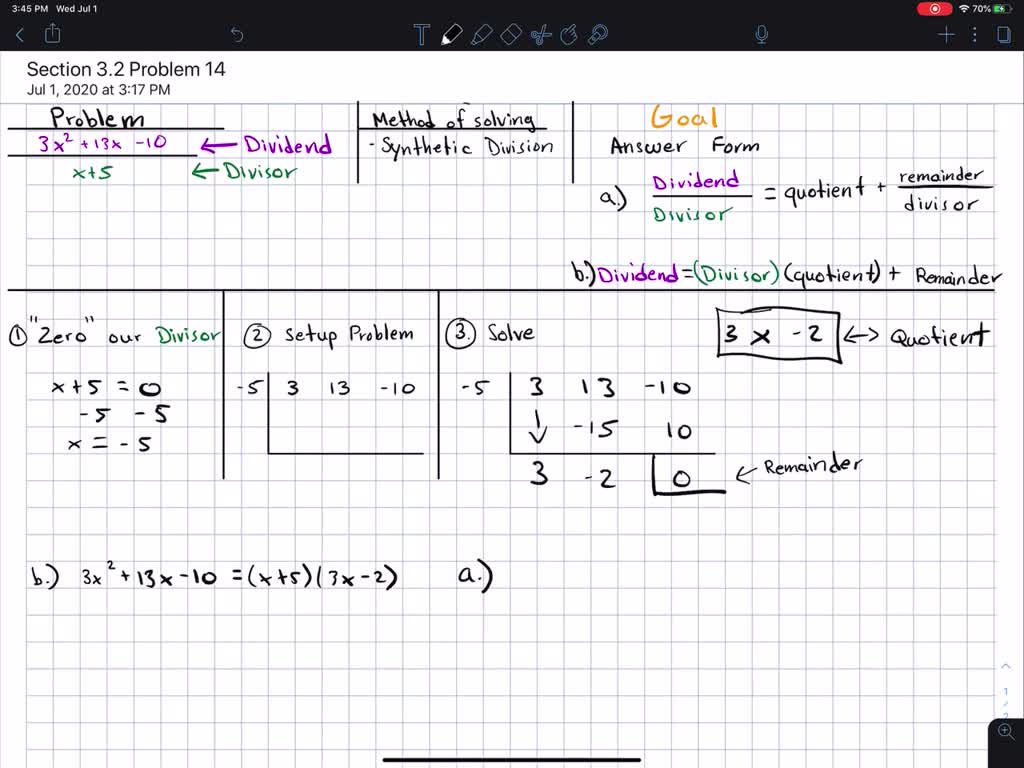 3:45 PM Wed Jul 1
70%
Section 3.2 Problem 14
Jul 1, 2020 at 3:17 PM
Problem
3x² + 13x - 10 ← Dividend
x+5 ← Divisor
Method of solving
- Synthetic Division
Goal
Answer Form
a.) Dividend / Divisor = quotient + remainder / divisor
b.) Dividend = (Divisor)(quotient) + Remainder
① "Zero" our Divisor
x + 5 = 0
-5 -5
x = -5
② Setup Problem
-5 | 3 13 -10
③. Solve
3 x -2 ↔ Quotient
-5 | 3 13 -10
↓ -15 10
3 -2 | 0 ← Remainder
b.) 3x² + 13x - 10 = (x+5)(3x-2)
a.)
1
/
2